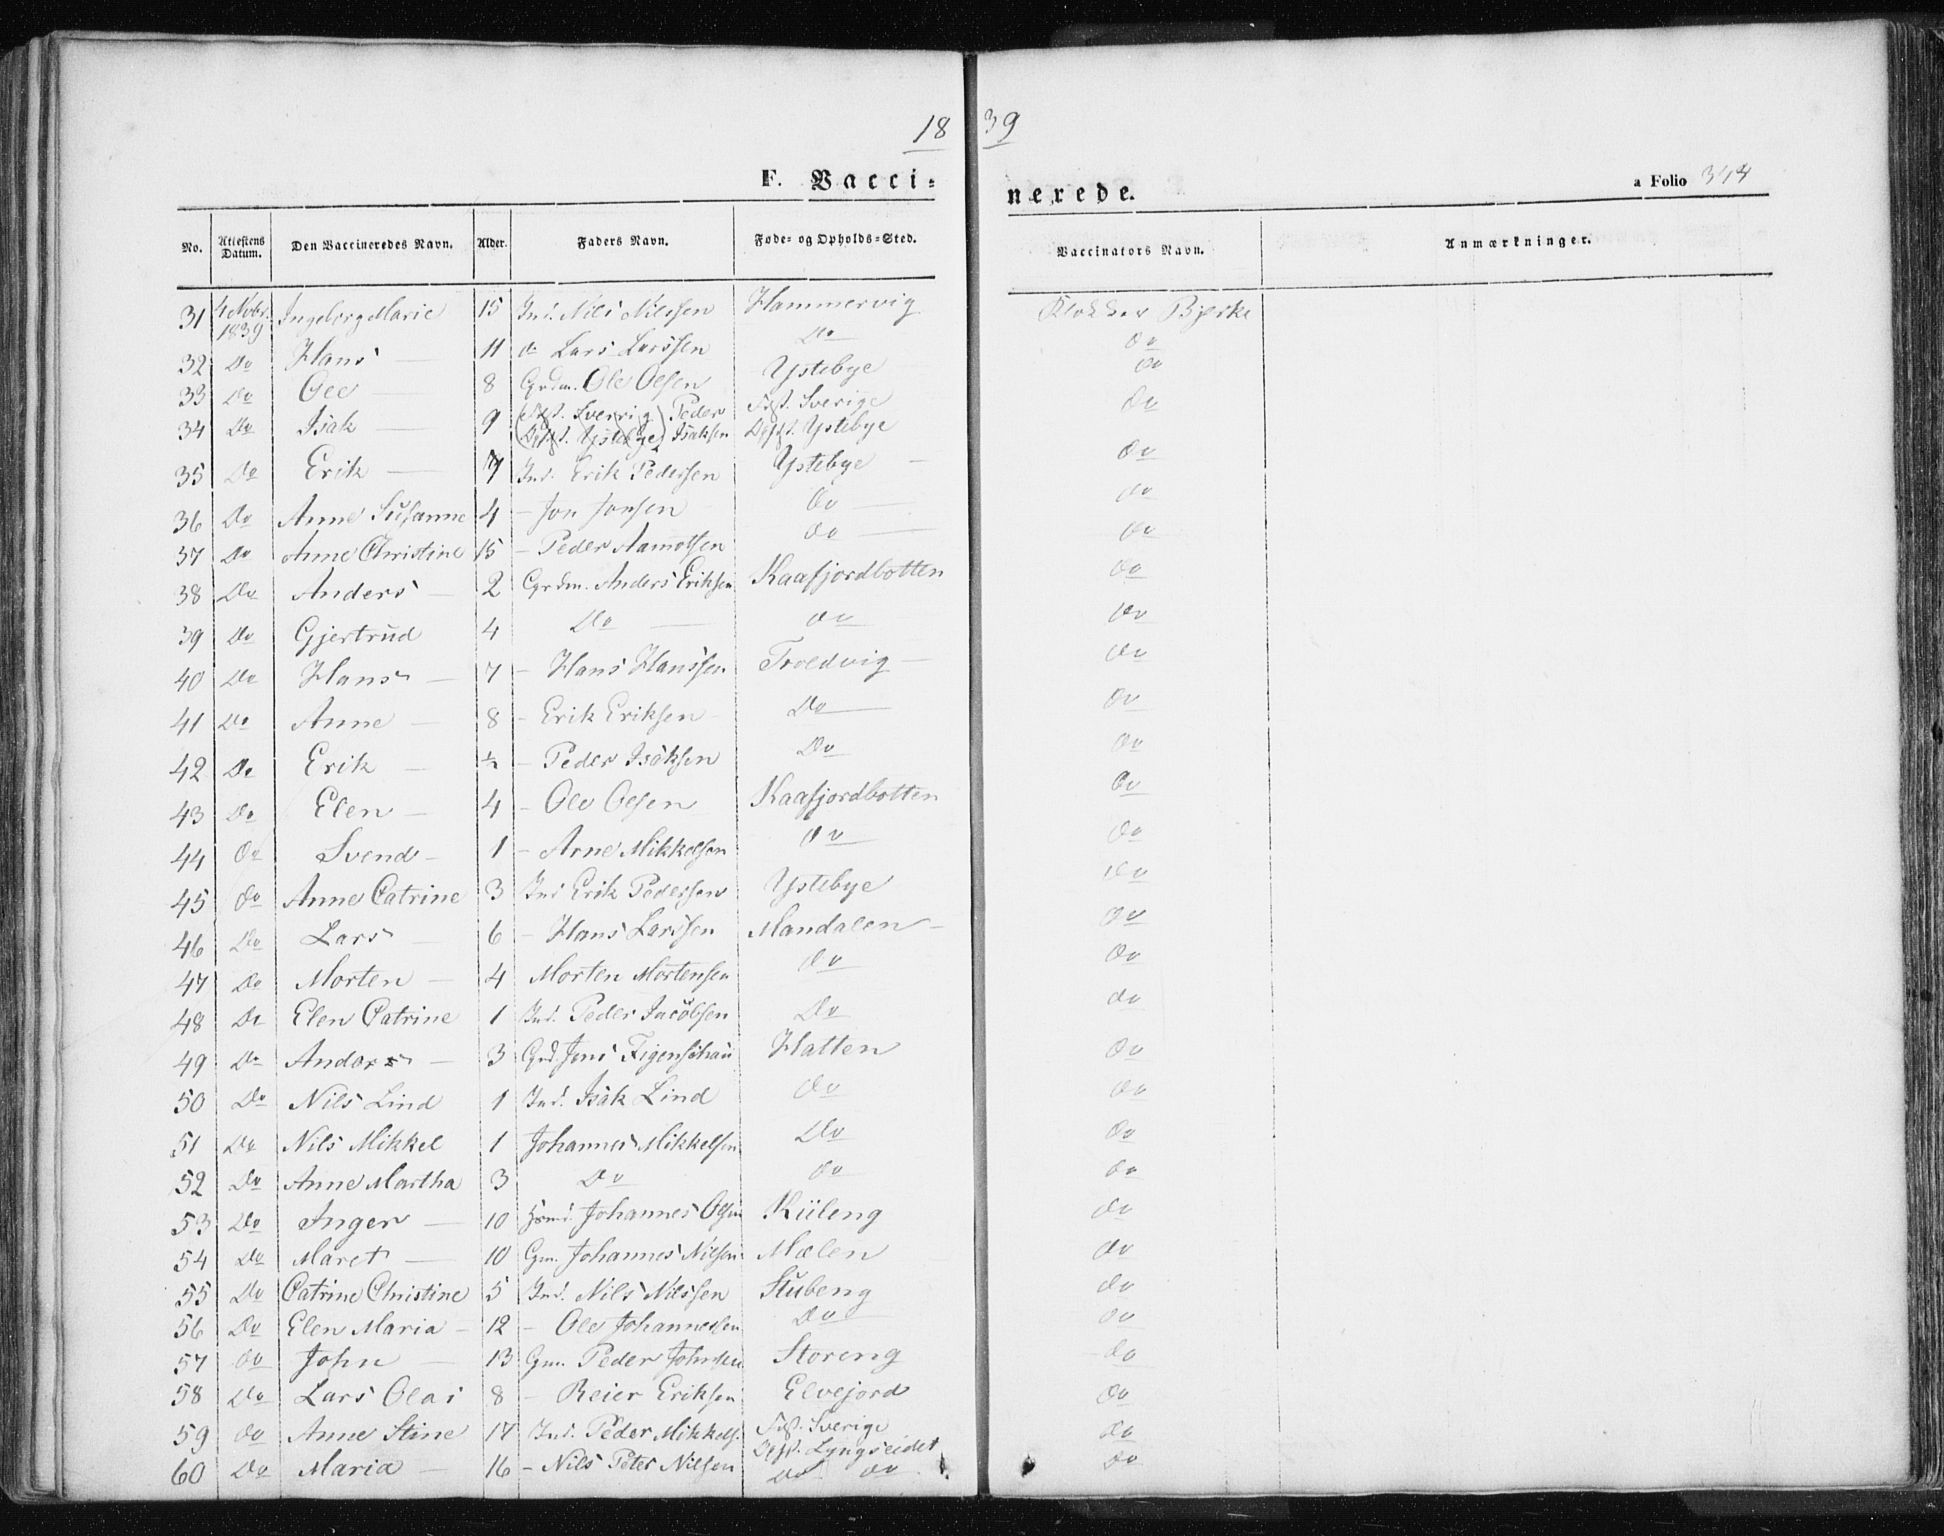 18 39
F. Vacci-
nerede.
a Folio 344
No. Attestens Datum. Den Vaccineredes Navn. Alder. Faders Navn. Føde- og Opholds-Sted. Vaccinators Navn. Anmærkninger.
31 4 Novbr. 1839 Ingeborg Marie 15 Ind. Nils Nilssen Hammervig Klokker Bjerke
32 Do Hans — 11 do Lars Larssen Do Do
33 Do Ole — 8 Grdm. Ole Olsen Ystebye Do
34 Do Isak — 9 (Fst. Sverrig Peder Fst. Sverige Do
Opst. Ystebye) Isaksen Opst. Ystebye
35 Do Erik — 7 Ind. Erik Pedersen Ystebye — Do
36 Do Anne Susanne 4 — Jon Jonsen Do — Do
37 Do Anne Christine 15 — Peder Aamotsen Do — Do
38 Do Anders — 2 Grdm. Anders Eriksen Kaafjordbotten Do
39 Do Gjertrud 4 Do — Do Do
40 Do Hans — 7 — Hans Hanssen Troldvig — Do
41 Do Anne — 8 — Erik Eriksen Do — Do
42 Do Erik — ½ — Peder Isaksen Do Do
43 Do Elen — 4 — Ole Olsen Kaafjordbotten Do
44 Do Svend — 1 — Arne Mikkelsen Do Do
45 Do Anne Catrine 3 Ind Erik Pedersen Ystebye Do
46 Do Lars — 6 — Hans Larssen Mandalen — Do
47 Do Morten — 4 Morten Mortensen Do Do
48 Do Elen Catrine 1 Ind. Peder Jacobsen Do Do
49 Do Anders — 3 Grd. Jens Figenschau Hatten Do
50 Do Nils Lind 1 Ind. Isak Lind Do Do
51 Do Nils Mikkel 1 Johannes Mikkelsen Do Do
52 Do Anne Martha 3 Do Do Do
53 Do Inger — 10 Hsmd. Johannes Olsen Kiileng Do
54 Do Maret — 10 Gm. Johannes Nilsen Mælen Do
55 Do Catrine Christine 5 Ind. Nils Nilssen Stubeng Do
56 Do Elen Maria — 12 — Ole Johannessen Do Do
57 Do John — 13 Gm. Peder Johnsen Storeng Do
58 Do Lars Olai 8 — Reier Eriksen Elvejord Do
59 Do Anne Stine 17 Ind. Peder Mikkels. Fst. Sverige Do
Opst. Lyngseidet
60 Do Maria — 16 — Nils Peter Nilsen Do Do Do